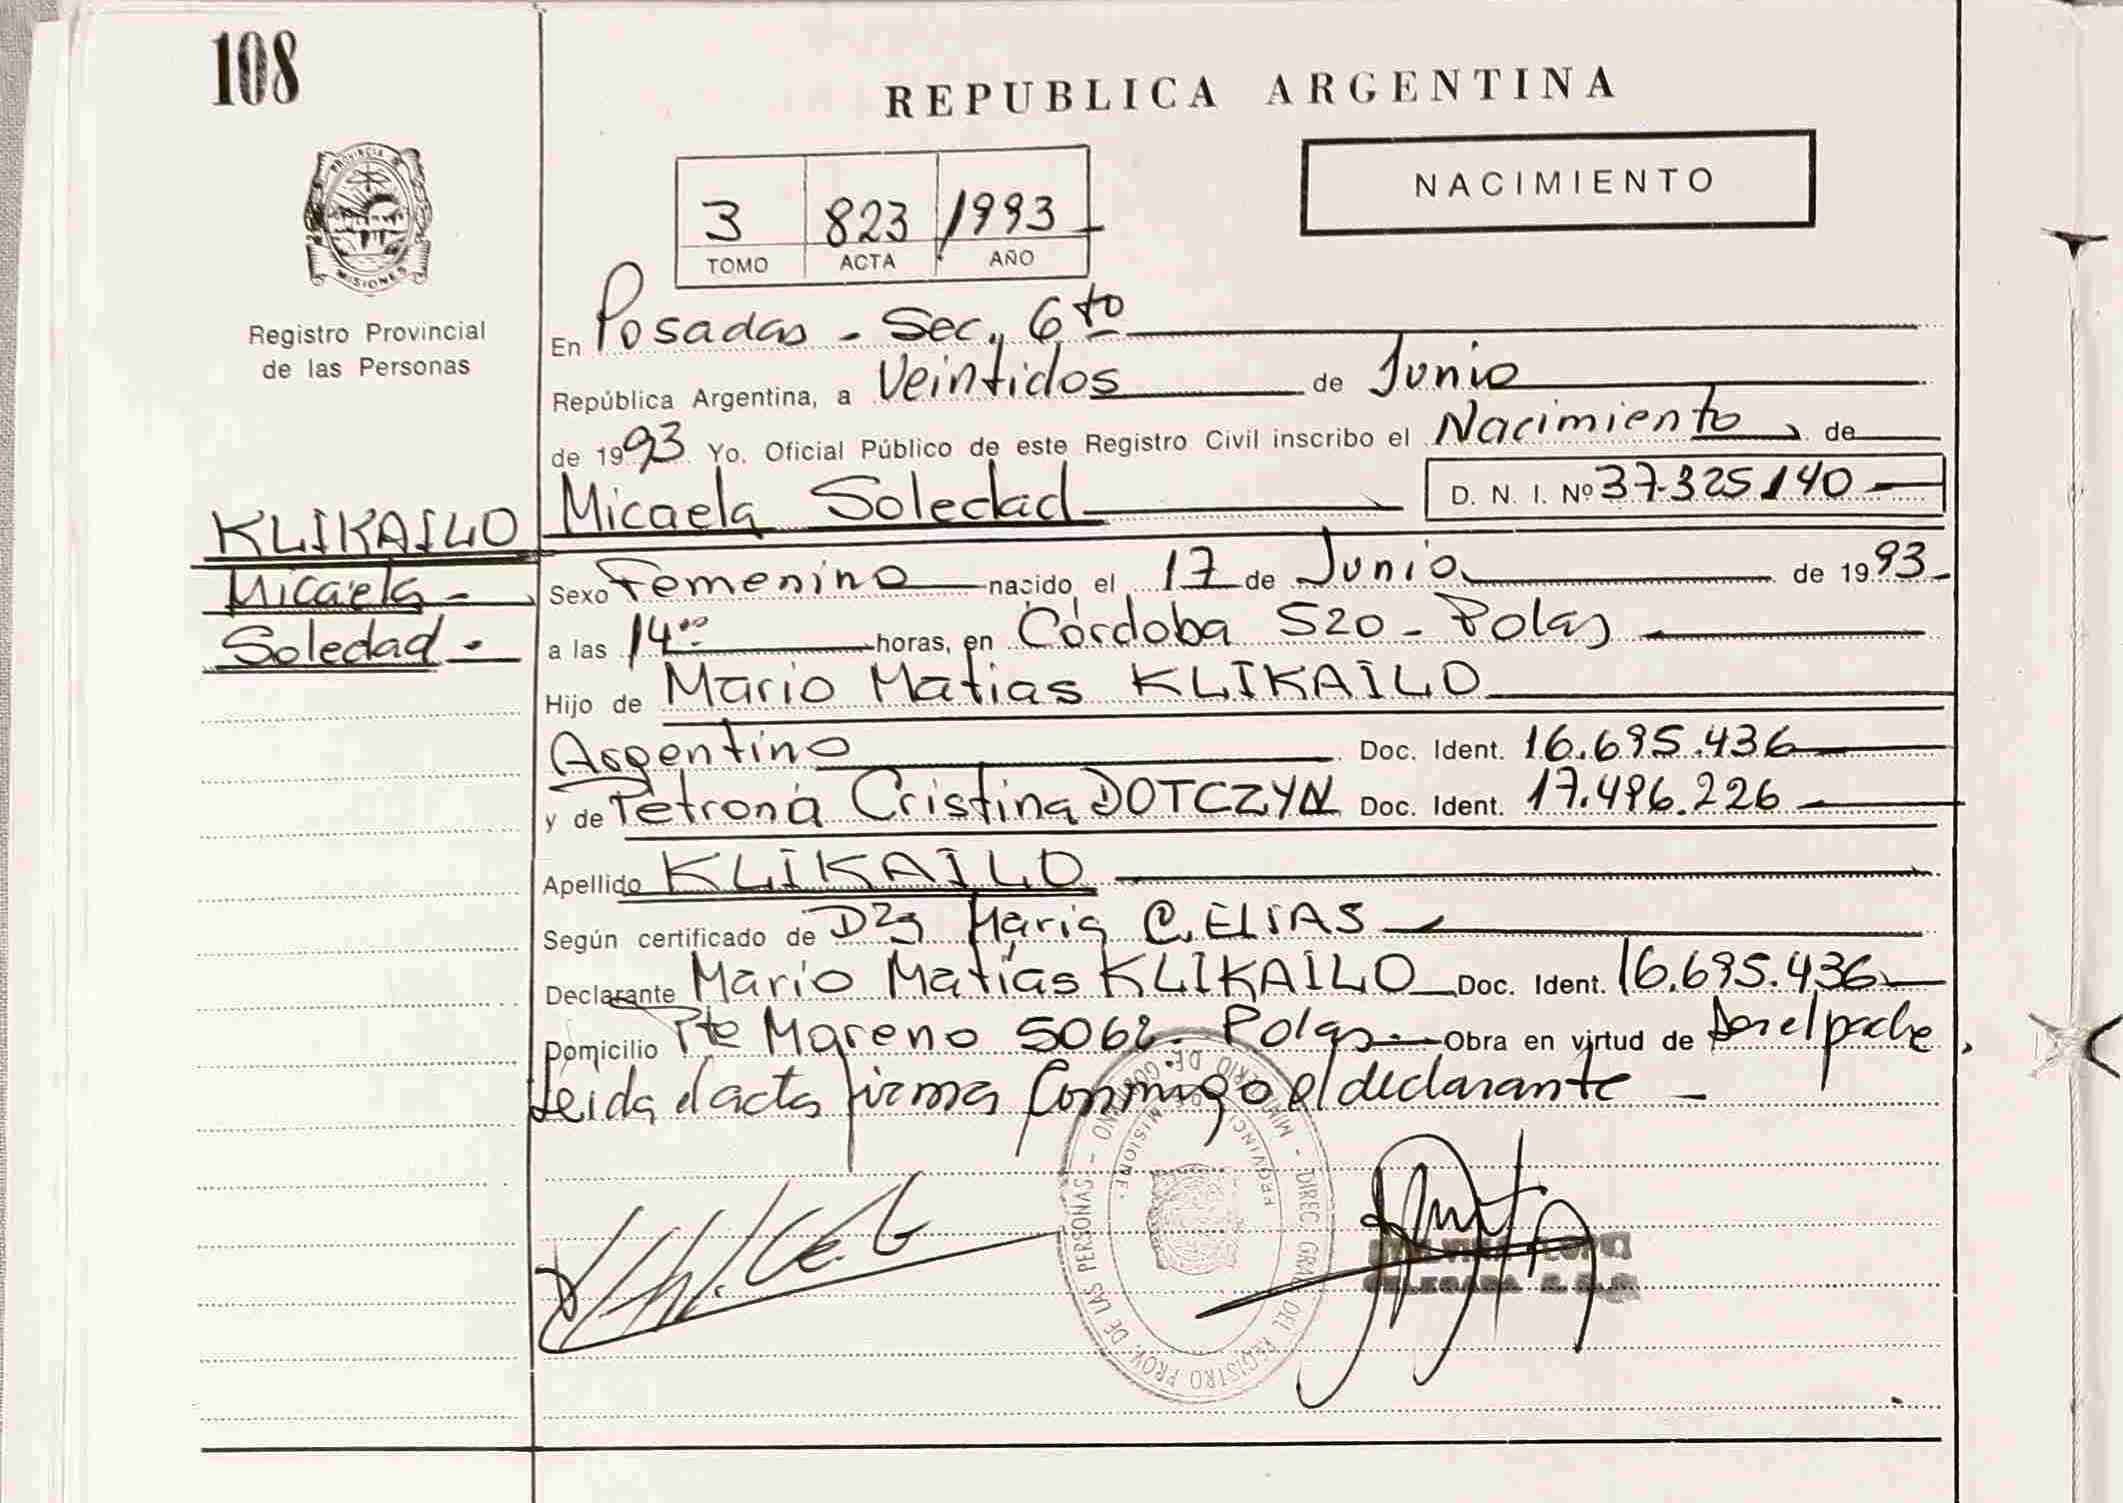 108
REPUBLICA ARGENTINA
NACIMIENTO
3 823 1993
TOMO ACTA AÑO
PROVINCIA DE
MISIONES
Registro Provincial
de las Personas
En Posadas - Sec. 6to
República Argentina, a Veintidos de Junio
de 1993 Yo. Oficial Público de este Registro Civil inscribo el Nacimiento de
Micaela Soledad D. N. I. Nº 37.325.140
KLIKAILO
Micaela -
Soledad -
Sexo Femenino nacido el 17 de Junio de 1993
a las 14 00 horas, en Córdoba 520 - Pdas
Hijo de Mario Matias KLIKAILO
Argentino Doc. Ident. 16.695.436
y de Petrona Cristina DOTCZYN Doc. Ident. 17.496.226
Apellido KLIKAILO
Según certificado de Dra Maria C. ELIAS
Declarante Mario Matías KLIKAILO Doc. Ident. 16.695.436
Domicilio Pte Moreno 5062 - Pdas - Obra en virtud de ser el padre,
Leida el acta firma conmigo el declarante -
MINISTERIO DE GOBIERNO - DIREC. GRAL. DEL REGISTRO PROV. DE LAS PERSONAS -
PROVINCIA DE MISIONES